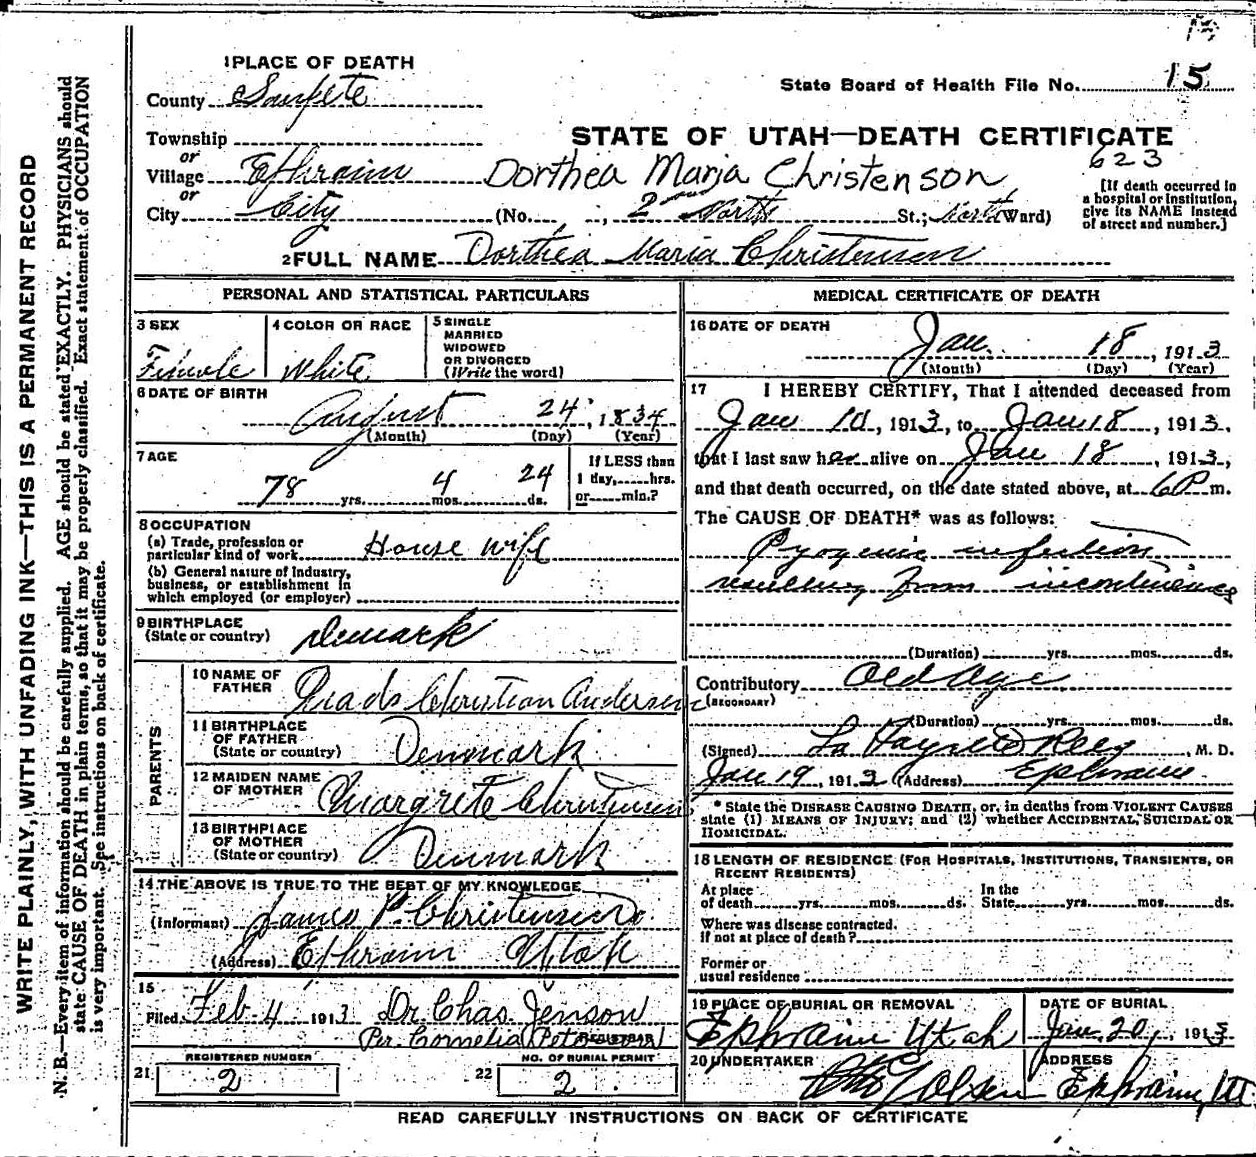 15
1 PLACE OF DEATH
State Board of Health File No. 15
County Sanpete
STATE OF UTAH—DEATH CERTIFICATE
Township
or
Village Ephraim
Dorthea Maria Christenson
623
or
City City (No. , 2 North St.; North Ward)
[If death occurred in
a hospital or institution,
give its NAME instead
of street and number.]
2 FULL NAME Dorthea Maria Christensen
PERSONAL AND STATISTICAL PARTICULARS
3 SEX
Female
4 COLOR OR RACE
White
5 SINGLE
MARRIED
WIDOWED
OR DIVORCED
(Write the word)
6 DATE OF BIRTH
August 24, 1834
(Month) (Day) (Year)
7 AGE
78 yrs. 4 mos. 24 ds.
If LESS than
1 day, hrs.
or min.?
8 OCCUPATION
(a) Trade, profession or
particular kind of work House wife
(b) General nature of Industry,
business, or establishment in
which employed (or employer)
9 BIRTHPLACE
(State or country) Denmark
PARENTS
10 NAME OF
FATHER Christian Andersen
11 BIRTHPLACE
OF FATHER
(State or country) Denmark
12 MAIDEN NAME
OF MOTHER Margrete Christensen
13 BIRTHPLACE
OF MOTHER
(State or country) Denmark
14 THE ABOVE IS TRUE TO THE BEST OF MY KNOWLEDGE
(Informant) James P. Christensen
(Address) Ephraim Utah
15
Filed Feb 4 1913 Dr. Chas. Jenson
Per. Cornelia
REGISTRAR
REGISTERED NUMBER
21 2
NO. OF BURIAL PERMIT
22 2
MEDICAL CERTIFICATE OF DEATH
16 DATE OF DEATH
Jan. 18, 1913
(Month) (Day) (Year)
17 I HEREBY CERTIFY, That I attended deceased from
Jan 10, 1913, to Jan 18, 1913,
that I last saw her alive on Jan 18, 1913,
and that death occurred, on the date stated above, at 6 P m.
The CAUSE OF DEATH* was as follows:
Pyogenic infection
resulting from incontinence
(Duration) yrs. mos. ds.
Contributory Old Age
(SECONDARY)
(Duration) yrs. mos. ds.
(Signed) , M. D.
Jan 19, 1913 (Address) Ephraim
* State the DISEASE CAUSING DEATH, or, in deaths from VIOLENT CAUSES
state (1) MEANS OF INJURY; and (2) whether ACCIDENTAL, SUICIDAL OR
HOMICIDAL.
18 LENGTH OF RESIDENCE (FOR HOSPITALS, INSTITUTIONS, TRANSIENTS, OR
RECENT RESIDENTS)
At place
of death yrs. mos. ds.
In the
State yrs. mos. ds.
Where was disease contracted.
if not at place of death?
Former or
usual residence
19 PLACE OF BURIAL OR REMOVAL
Ephraim Utah
DATE OF BURIAL
Jan. 20, 1913
20 UNDERTAKER
Olsen
ADDRESS
Ephraim, Ut
READ CAREFULLY INSTRUCTIONS ON BACK OF CERTIFICATE
WRITE PLAINLY, WITH UNFADING INK—THIS IS A PERMANENT RECORD
N. B.—Every item of information should be carefully supplied. AGE should be stated EXACTLY. PHYSICIANS should
state CAUSE OF DEATH in plain terms, so that it may be properly classified. Exact statement of OCCUPATION
is very important. See instructions on back of certificate.